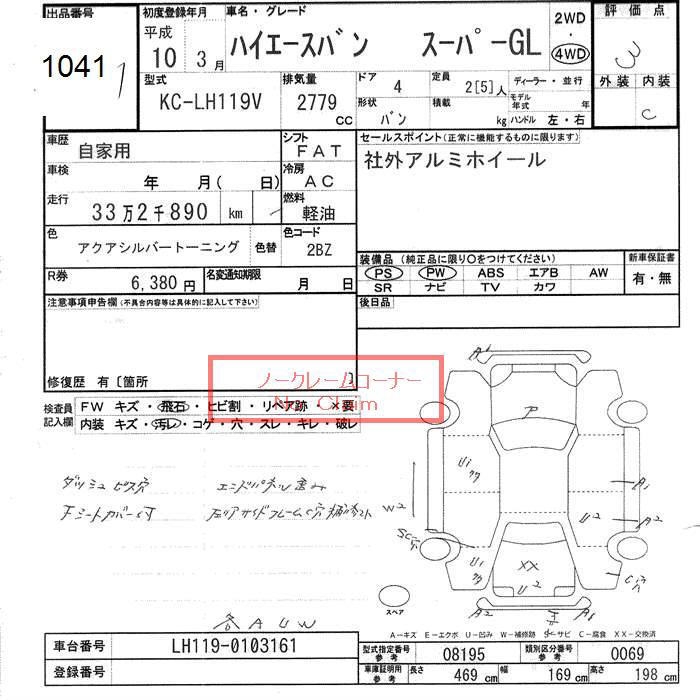 出品番号 初度登録年月 車名・グレード 2WD 評価点
1041 平成 10 3月 ハイエースバン スーパーGL 4WD
型式 排気量 ドア 4 定員 2[5]人 ディーラー・並行 外装 内装
KC-LH119V 2779 CC 形状 バン 積載 kg モデル年式 年 ハンドル 左・右 C
車歴 自家用 シフト FAT セールスポイント(正常に機能するものに限ります)
車検 年 月( 日) 冷房 AC 社外アルミホイール
走行 33万2千890 km 燃料 軽油
色 アクアシルバートーニング 色替 色コード 2BZ
装備品 (純正品に限り〇をつけてください) 新車保証書
R券 6,380円 名変通知期限 月 日 PS PW ABS エアB AW 有・無
SR ナビ TV カワ
注意事項申告欄(不具合内容等は具体的に記入して下さい) 後日品
修復歴 有〔箇所 〕
ノークレームコーナー
No Claim
検査員 FW キズ・飛石・ヒビ割・リペア跡・×要
記入欄 内装 キズ・汚レ・コゲ・穴・スレ・キレ・破レ
ダッシュ ビス穴 エンドパネル歪み
W2
A1
P
Ui
A1
A2
U2
Ui
XX
U2
A2
スペア
A U W
A-キズ E-エクボ U-凹み W-補修跡 S-サビ C-腐食 XX-交換済
車台番号 LH119-0103161 型式指定番号 参考 08195 類別区分番号 参考 0069
登録番号 車庫証明用 参考 長さ 469 cm 幅 169 cm 高さ 198 cm